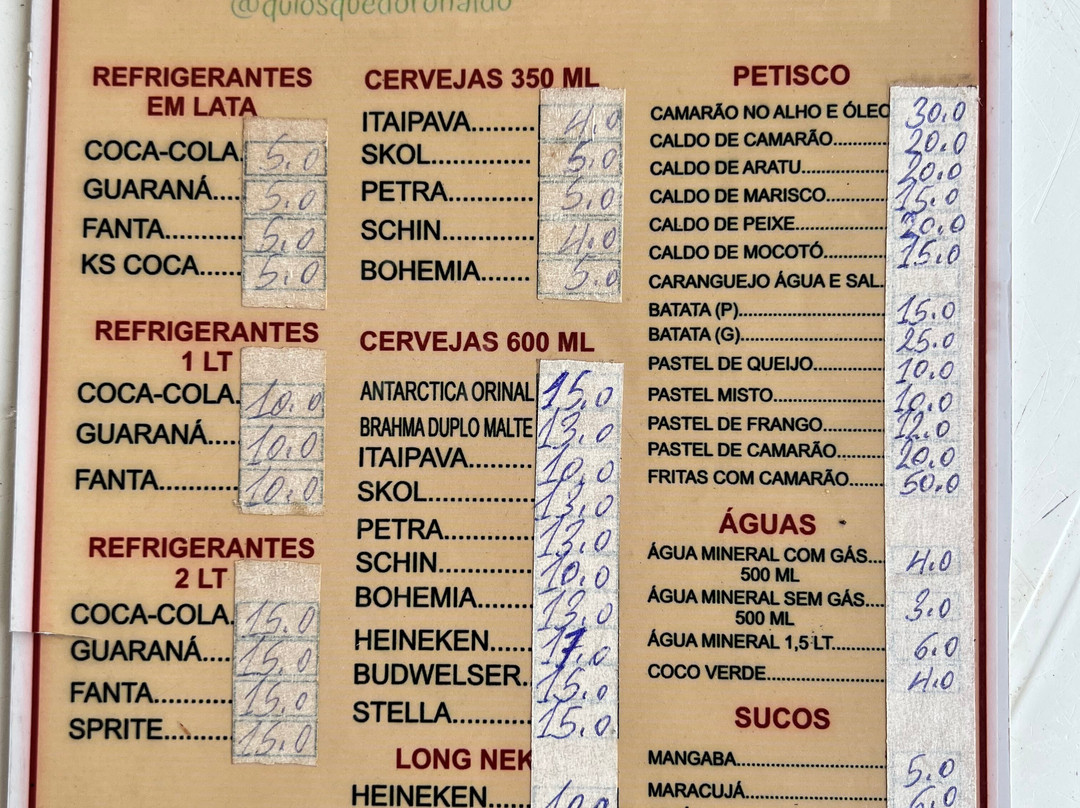 @quiosquedoronaldo
REFRIGERANTES
EM LATA
COCA-COLA. 5.0
GUARANÁ...... 5.0
FANTA........... 5.0
KS COCA...... 5.0
REFRIGERANTES
1 LT
COCA-COLA. 10.0
GUARANÁ.... 10.0
FANTA........... 10.0
REFRIGERANTES
2 LT
COCA-COLA. 15.0
GUARANÁ.... 15.0
FANTA........... 15.0
SPRITE.......... 15.0
CERVEJAS 350 ML
ITAIPAVA......... 4.0
SKOL.............. 5.0
PETRA............ 5.0
SCHIN............. 4.0
BOHEMIA........ 5.0
CERVEJAS 600 ML
ANTARCTICA ORINAL 15.0
BRAHMA DUPLO MALTE 13.0
ITAIPAVA......... 10.0
SKOL.............. 13.0
PETRA............ 13.0
SCHIN............. 10.0
BOHEMIA........ 13.0
HEINEKEN...... 17.0
BUDWELSER. 15.0
STELLA.......... 15.0
LONG NEK
HEINEKEN...... 10.0
PETISCO
CAMARÃO NO ALHO E ÓLEO 30.0
CALDO DE CAMARÃO........... 20.0
CALDO DE ARATU................. 20.0
CALDO DE MARISCO............ 15.0
CALDO DE PEIXE.................. 20.0
CALDO DE MOCOTÓ............. 15.0
CARANGUEJO ÁGUA E SAL.
BATATA (P)............................. 15.0
BATATA (G)............................. 25.0
PASTEL DE QUEIJO.............. 10.0
PASTEL MISTO...................... 10.0
PASTEL DE FRANGO............ 12.0
PASTEL DE CAMARÃO.......... 20.0
FRITAS COM CAMARÃO........ 50.0
ÁGUAS
ÁGUA MINERAL COM GÁS.... 4.0
500 ML
ÁGUA MINERAL SEM GÁS.... 3.0
500 ML
ÁGUA MINERAL 1,5 LT........... 6.0
COCO VERDE......................... 4.0
SUCOS
MANGABA............................... 5.0
MARACUJÁ............................. 6.0